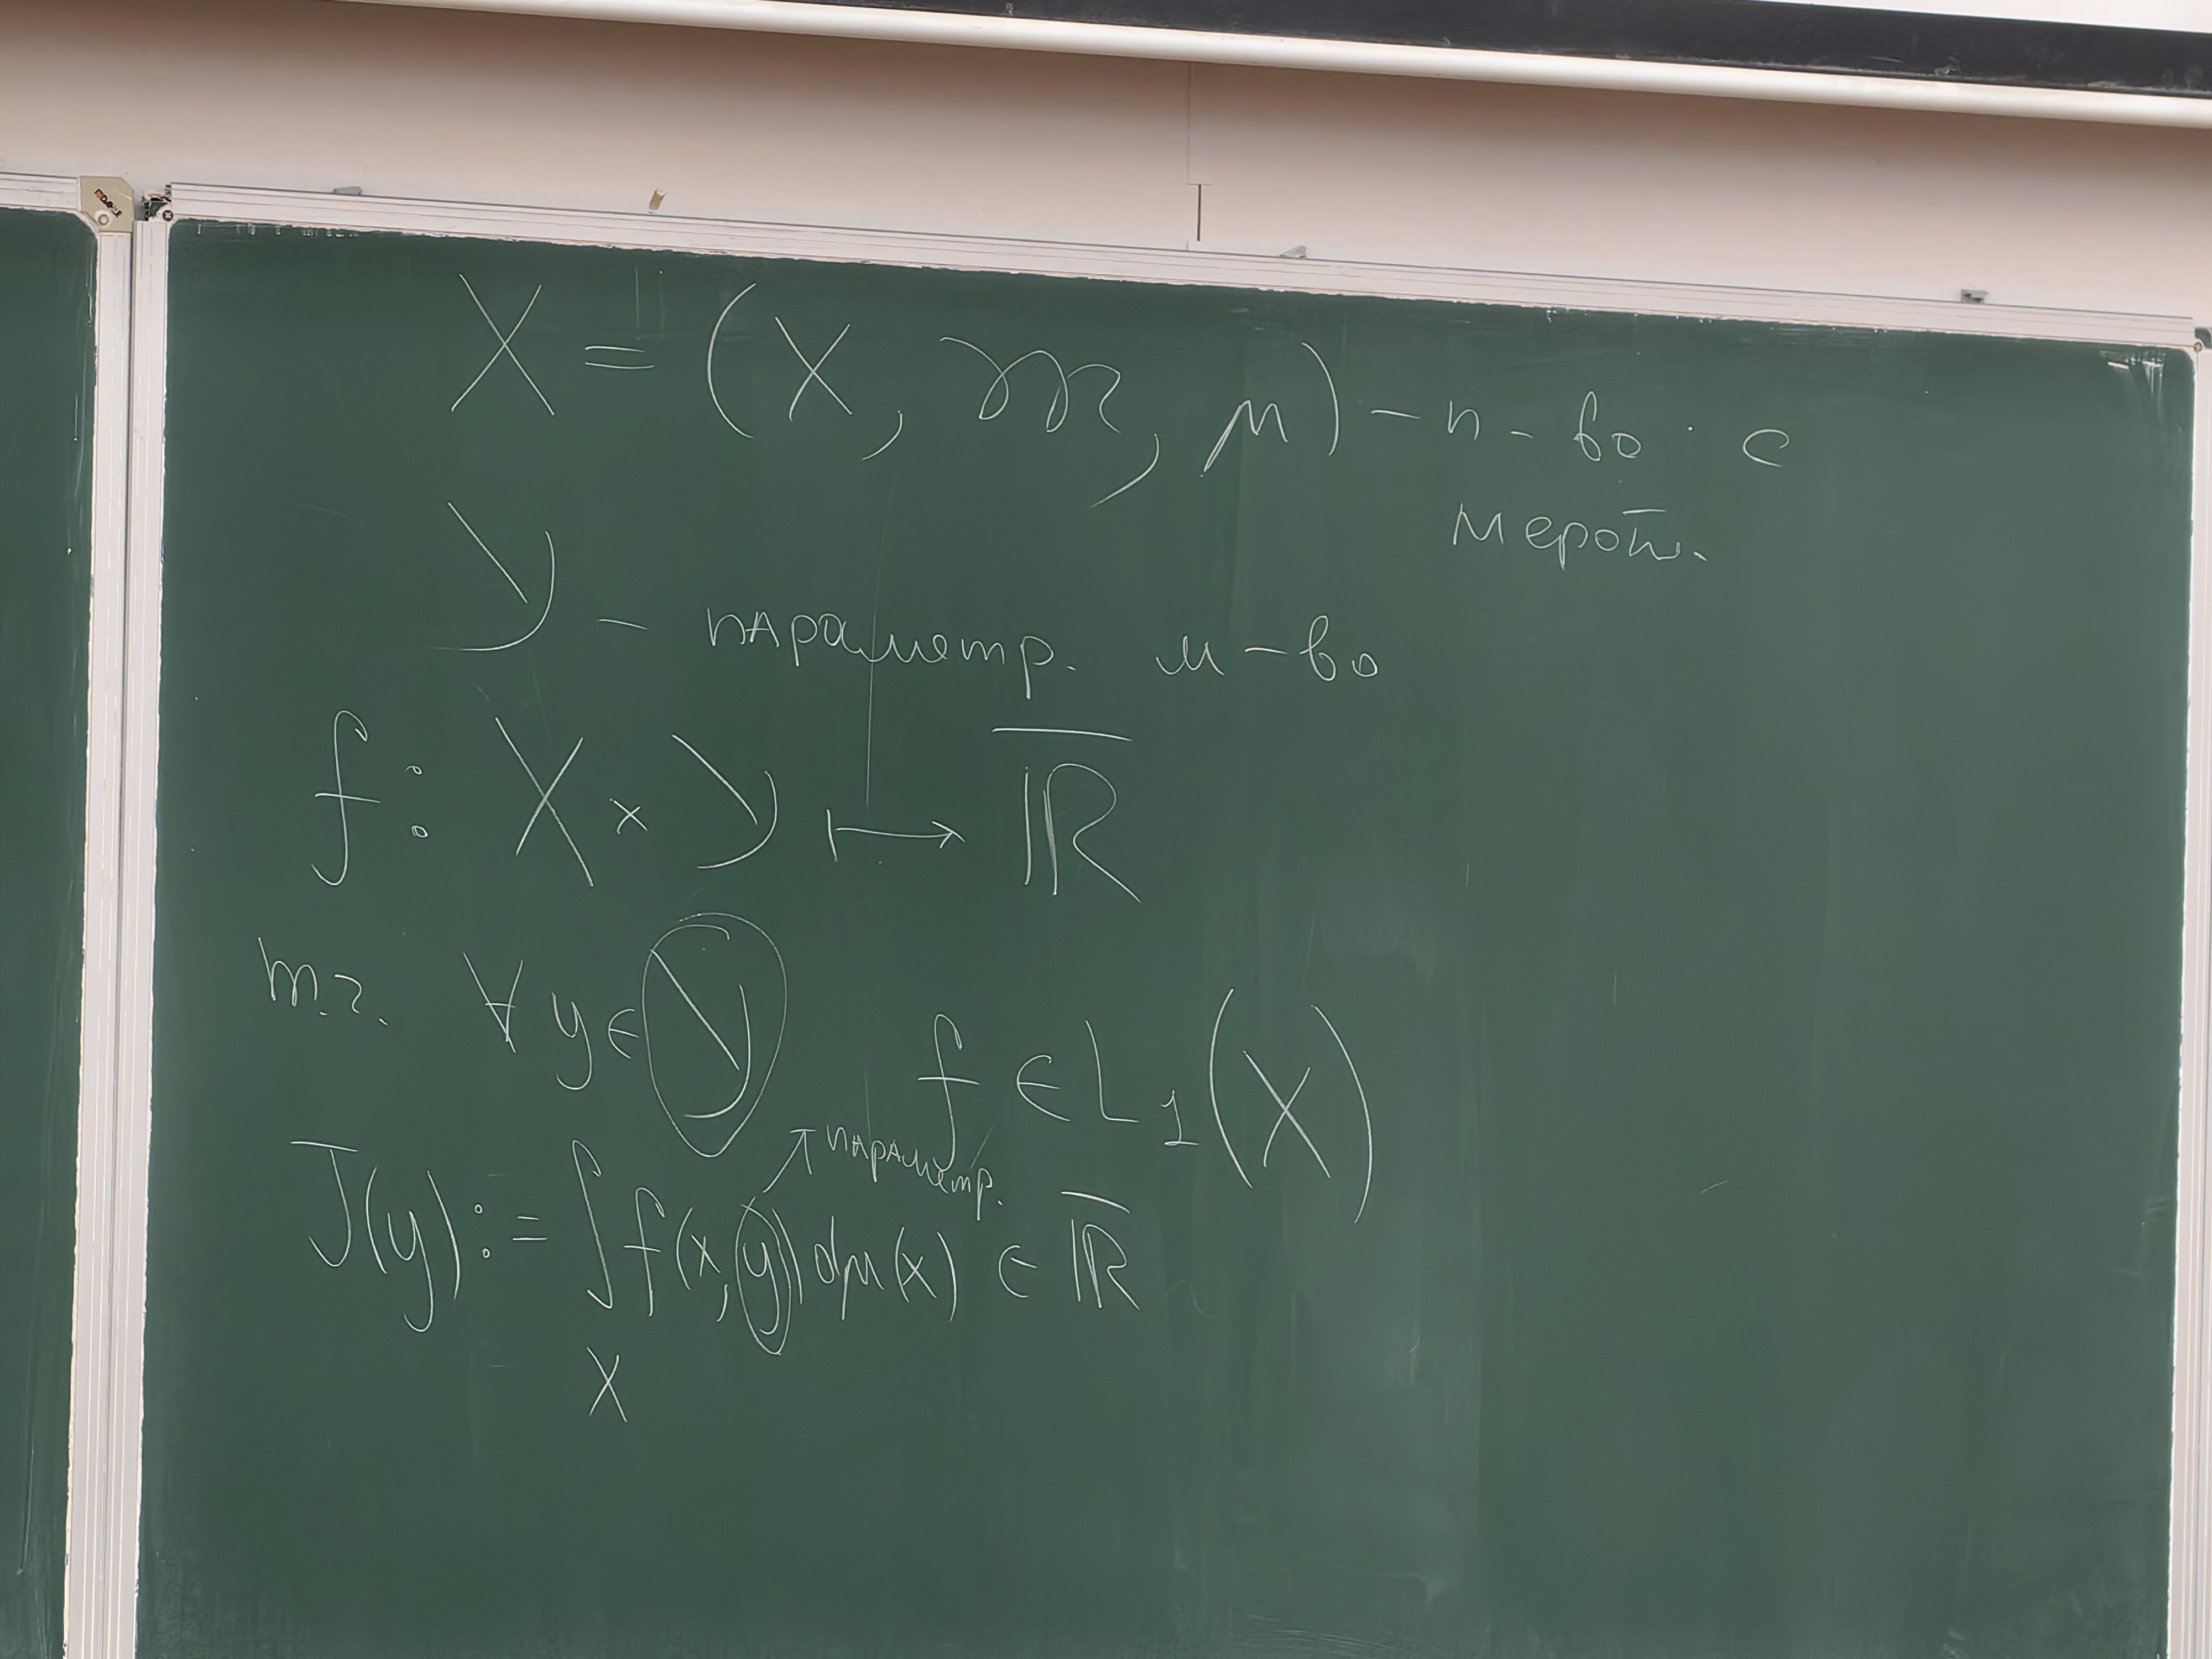 X = (X, 𝔐, μ) – п-во с
мерой.
Y – параметр. м-во
f: X × Y ↦ ℝ̅
т.ч. ∀ y ∈ Y f ∈ L₁(X)
параметр.
J(y) := ∫ f(x,y) dμ(x) ∈ ℝ̅
X